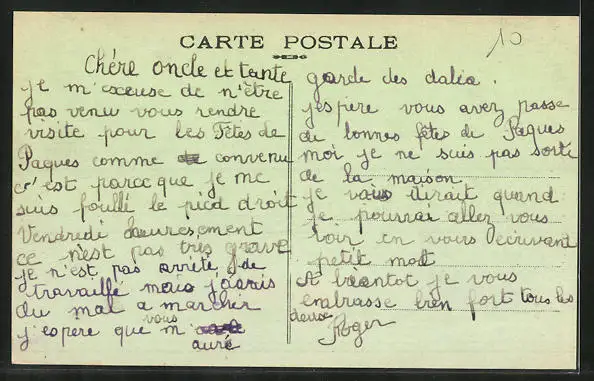 CARTE POSTALE
10
Chére oncle et tante
je m'excuse de n'être
pas venu vous rendre
visite pour les Fêtes de
Paques comme convenu
c'est parce que je me
suis foullé le pied droit
Vendredi heuresement
ce n'est pas très grave
je n'est pas arrité de
travaillé mais j'avais
du mal a marcher
j'espere que vous m'
auré
garde des dalia.
j'espère vous avez passe
de bonnes fêtes de Paques
moi je ne suis pas sorti
de la maison.
je vous dirait quand
je pourrai aller vous
voir en vous ecrivant
petit mot
A bientot je vous
embrasse bien fort tous les
deux
Roger